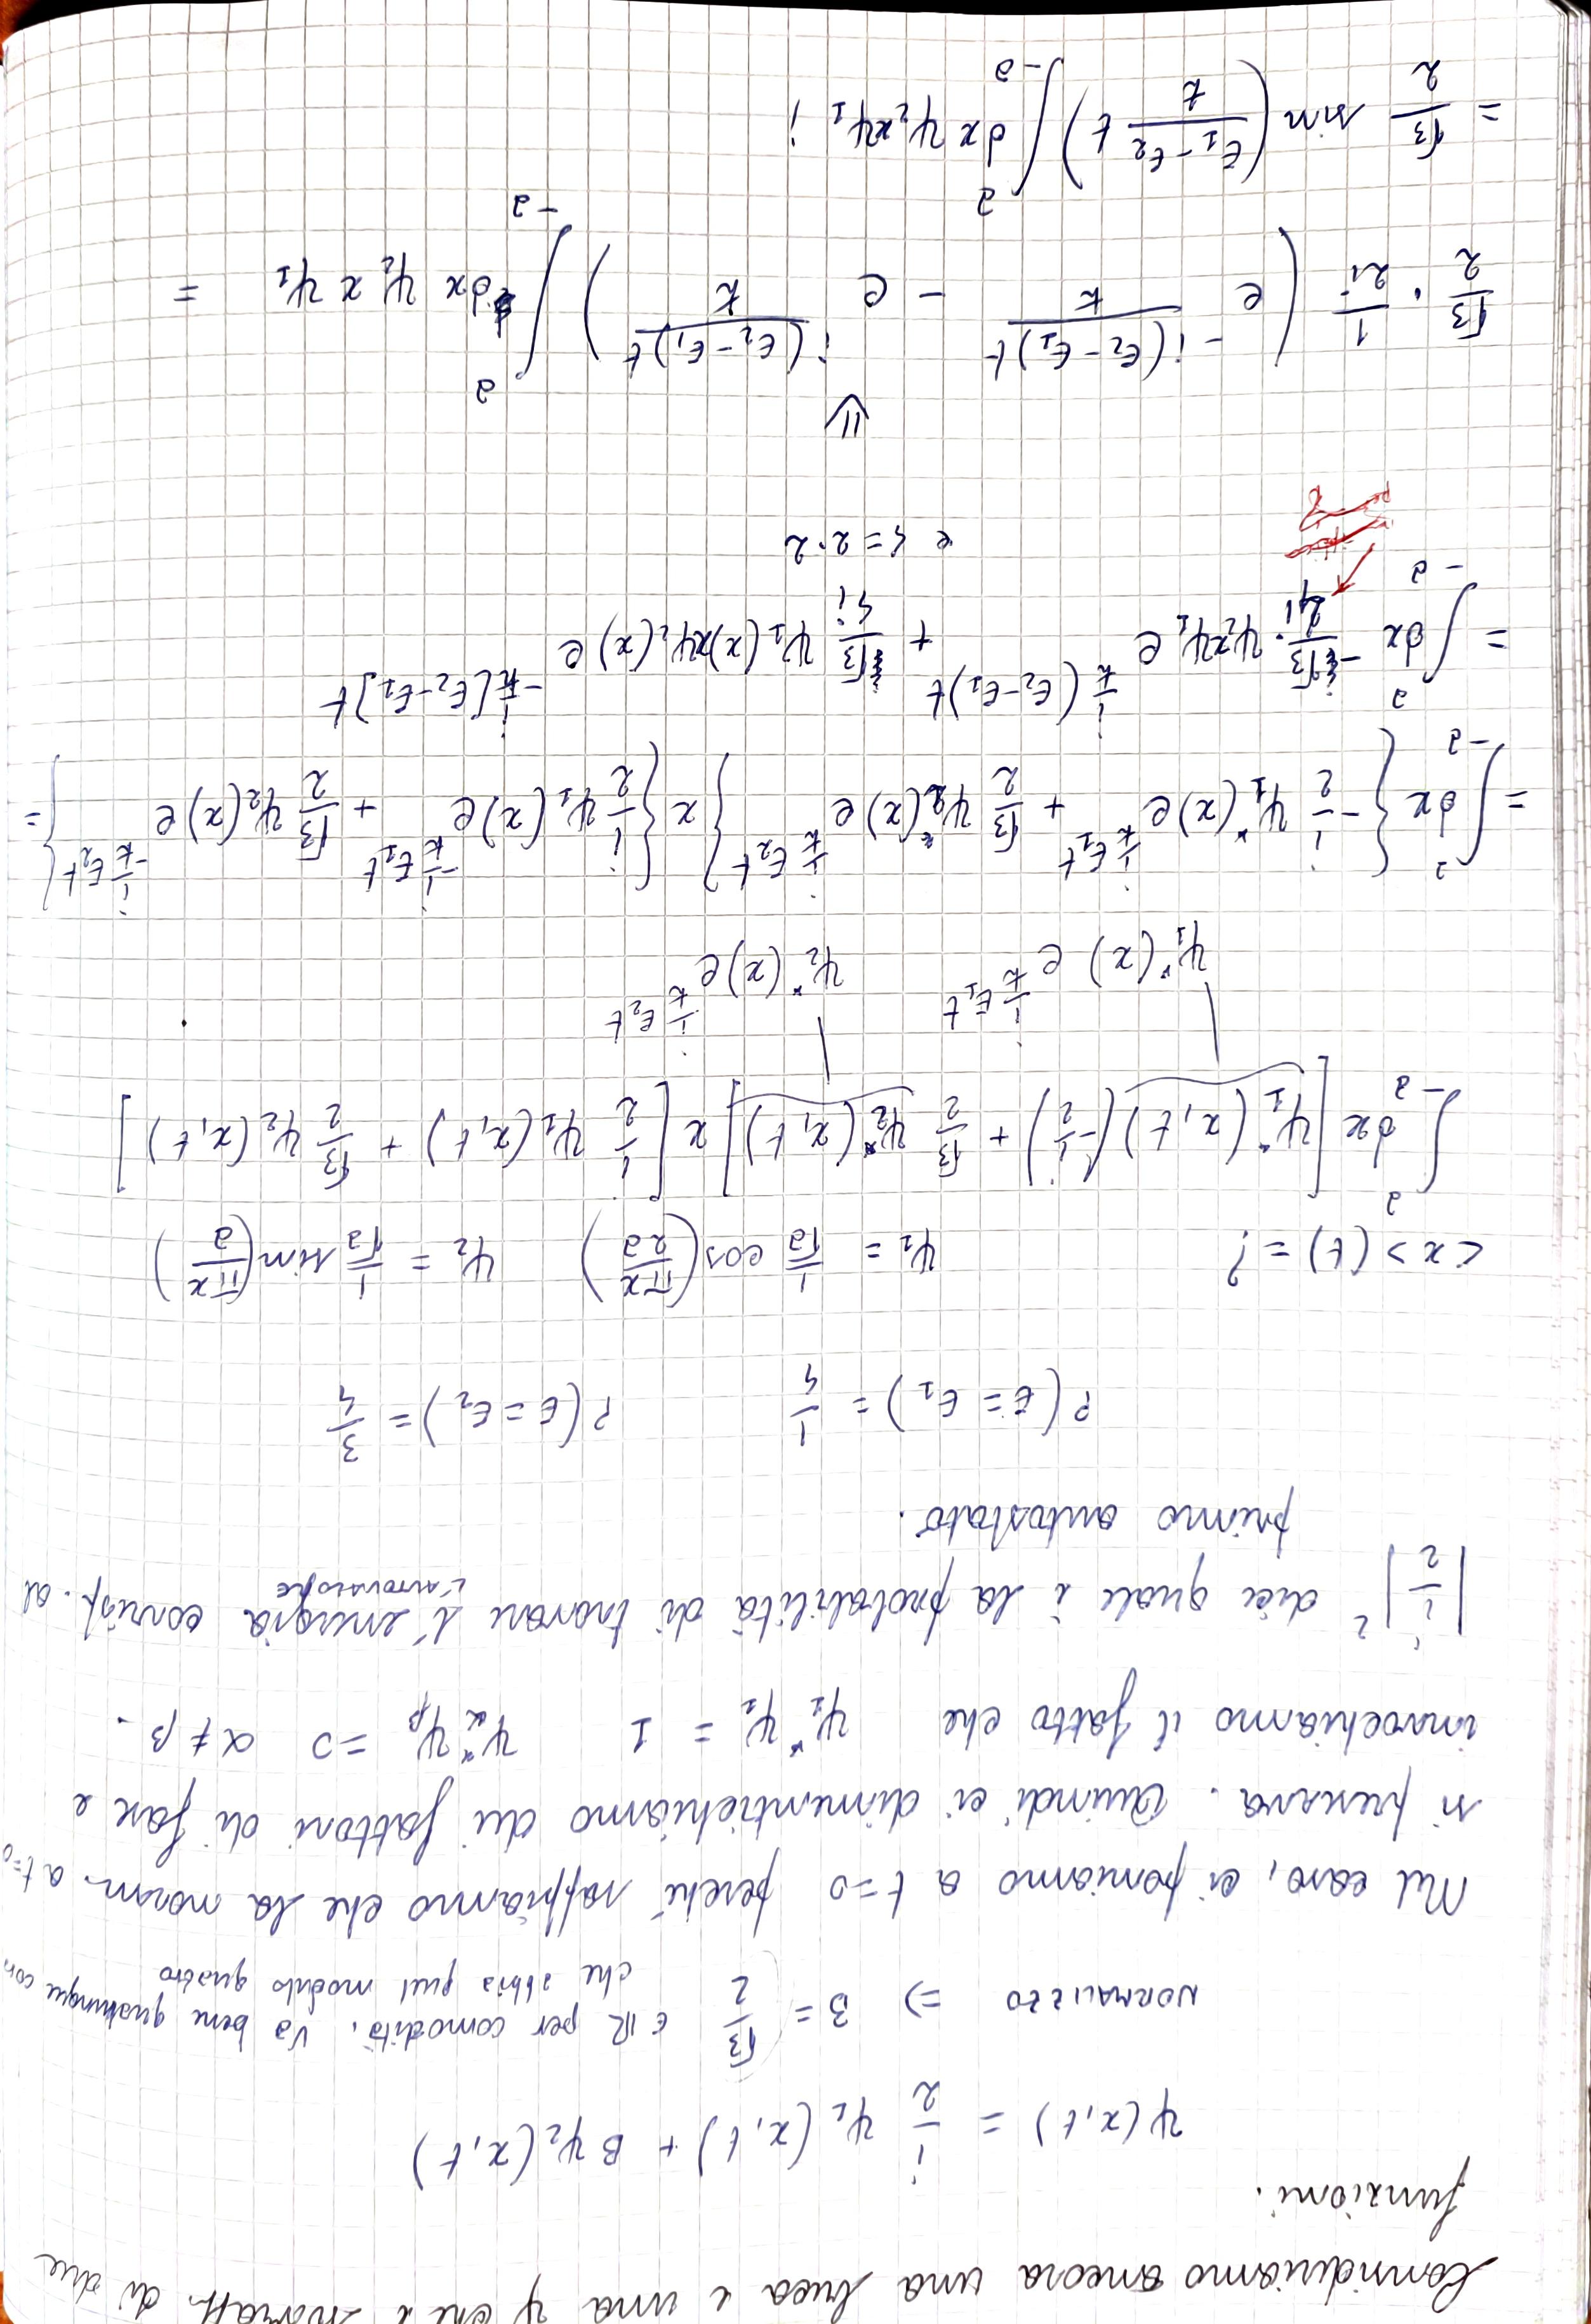 Consideriamo ancora una buca e una ψ che è sovrapp. di due
funzioni.
ψ(x,t) = i/2 ψ₁(x,t) + B ψ₂(x,t)
NORMALIZZO ⇒ B = √3/2 ∈ ℝ per comodità. Va bene qualunque con
che abbia quel modulo quatro
Nel caso, ci poniamo a t=0 perché sappiamo che la norm. a t=0
si preserva. Quindi ci dimentichiamo dei fattori di fase e
invochiamo il fatto che ψ₁*ψ₁ = 1 ψα*ψβ = 0 α ≠ β.
|i/2|² dice quale è la probabilità di trovare l'energia corrisp. al
L'AUTOVALORE
primo autostato.
P(E = E₁) = 1/4 P(E = E₂) = 3/4
<x>(t) = ? ψ₁ = 1/√a cos(πx/2a) ψ₂ = 1/√a sin(πx/a)
∫₋ₐᵃ dx [ψ₁*(x,t)(-i/2) + √3/2 ψ₂*(x,t)] x [i/2 ψ₁(x,t) + √3/2 ψ₂(x,t)]
ψ₁*(x) e^{i/ħ E₁t} ψ₂*(x) e^{i/ħ E₂t}
= ∫₋ₐᵃ dx {-i/2 ψ₁*(x) e^{i/ħ E₁t} + √3/2 ψ₂*(x) e^{i/ħ E₂t}} x {i/2 ψ₁(x) e^{-i/ħ E₁t} + √3/2 ψ₂(x) e^{-i/ħ E₂t}} =
= ∫₋ₐᵃ dx -√3/4i · ψ₂xψ₁ e^{i/ħ (E₂-E₁)t} + √3/4i ψ₁(x)xψ₂(x) e^{-i/ħ [E₂-E₁]t}
e 4 = 2·2
⇓
√3/2 · 1/2i (e^{-i(E₂-E₁)t/ħ} - e^{i(E₂-E₁)t/ħ}) ∫₋ₐᵃ dx ψ₂ x ψ₁ =
= √3/2 sin(E₁-E₂/ħ t) ∫₋ₐᵃ dx ψ₂xψ₁ ;